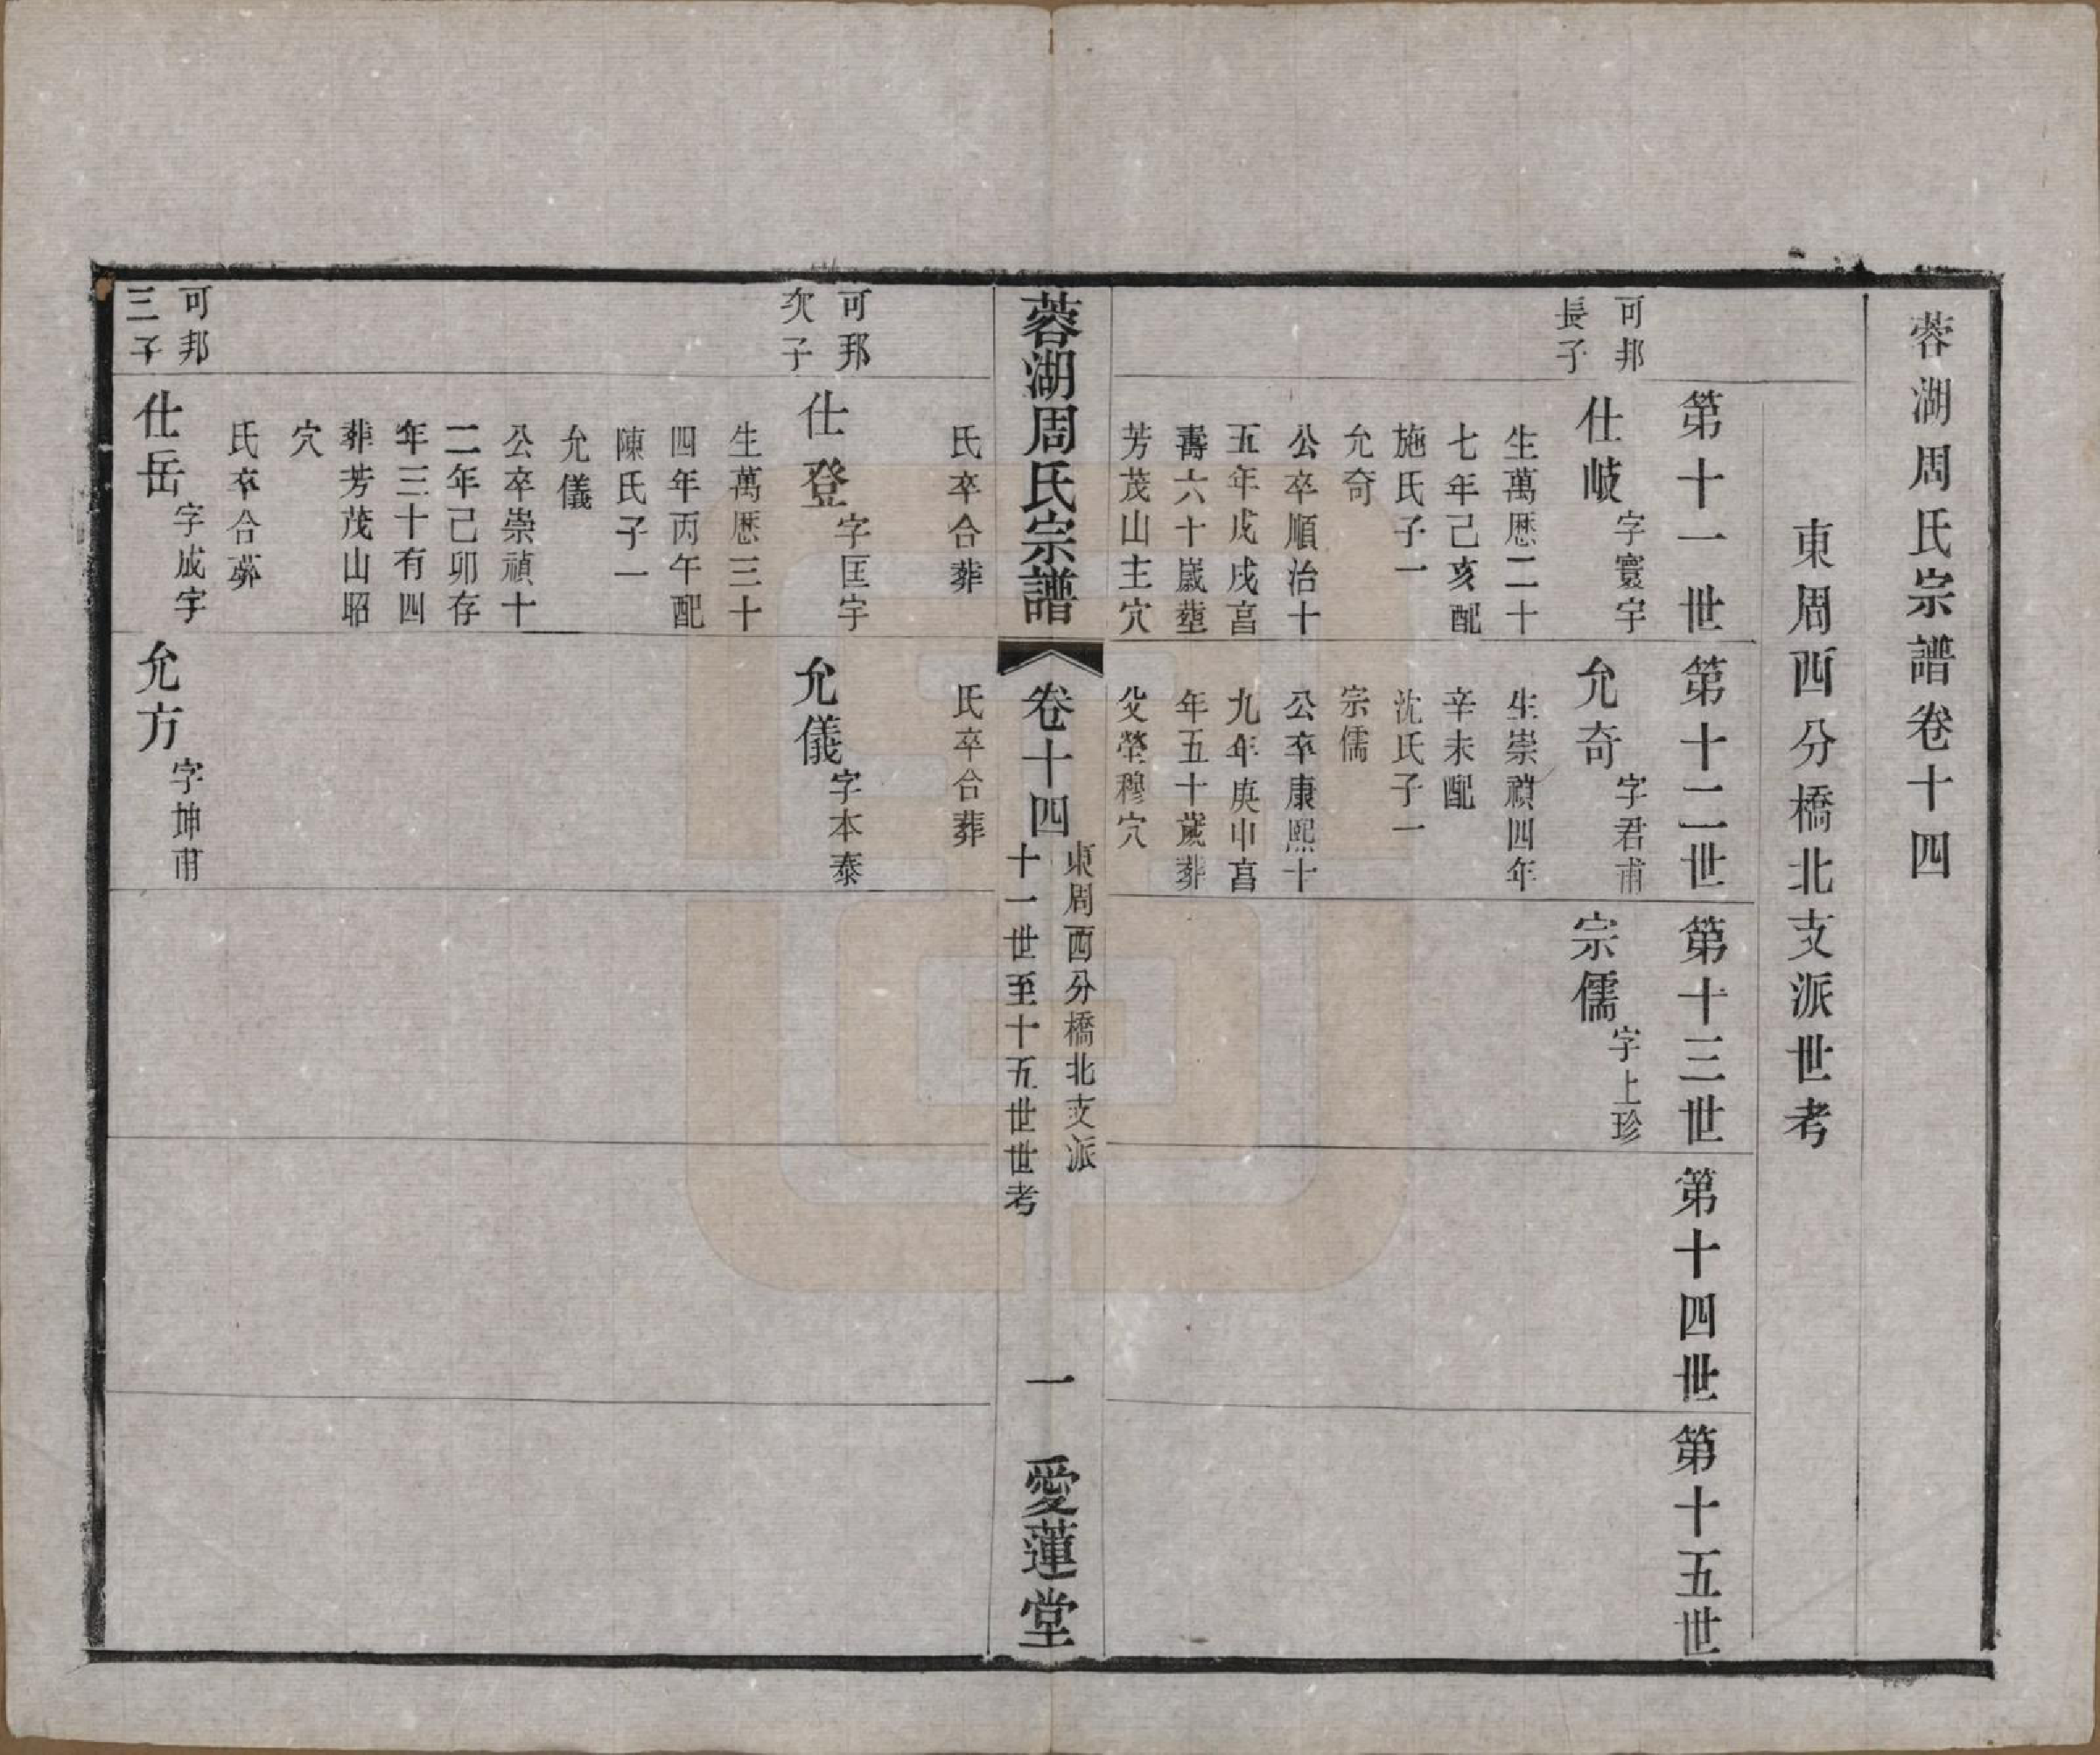 蓉湖周氏宗譜卷十四
東周西分橋北支派世考
第十一世
第十二世
第十三世
第十四世
第十五世
可邦
長子
仕岐
字寰宇
生萬厯二十
七年己亥配
施氏子一
允奇
公卒順治十
五年戊戌喜
壽六十嵗塟
芳茂山主穴
氏卒合葬
允奇
字君甫
生崇禎四年
辛未配
沈氏子一
宗儒
公卒康熙十
九年庚申喜
年五十歲葬
父塋穆穴
氏卒合葬
宗儒
字上珍
蓉湖周氏宗譜
卷十四
東周西分橋北支派
十一世至十五世世考
一
愛蓮堂
可邦
次子
仕登
字匡宇
生萬厯三十
四年丙午配
陳氏子一
允儀
公卒崇禎十
二年己卯存
年三十有四
葬芳茂山昭
穴
氏卒合葬
允儀
字本泰
可邦
三子
仕岳
字成宇
允方
字坤甫